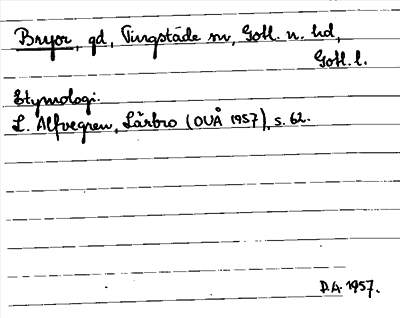 Bryor, gd, Tingstäde sn, Gotl. n. hd,
Gotl. l.
Etymologi.
L. Alfvegren, Lärbro (OUÅ 1957), s. 62.
D.A. 1957.